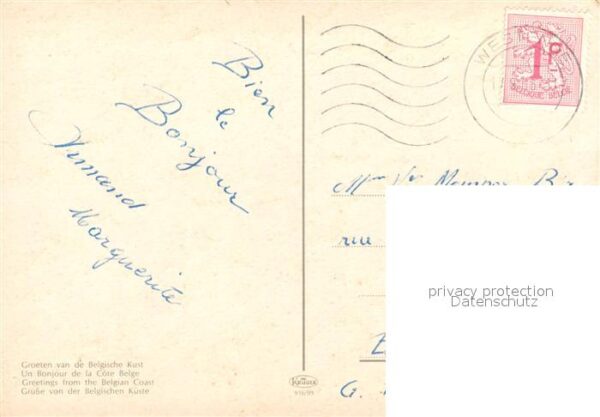 Bien
le
Bonjour
Armand
Marguerite
Groeten van de Belgische Kust
Un Bonjour de la Côte Belge
Greetings from the Belgian Coast
Grüße von der Belgischen Küste
KRÜGER
1F
BELGIQUE BELGIE
WEST
Mme Vve
rue
G.
privacy protection
Datenschutz